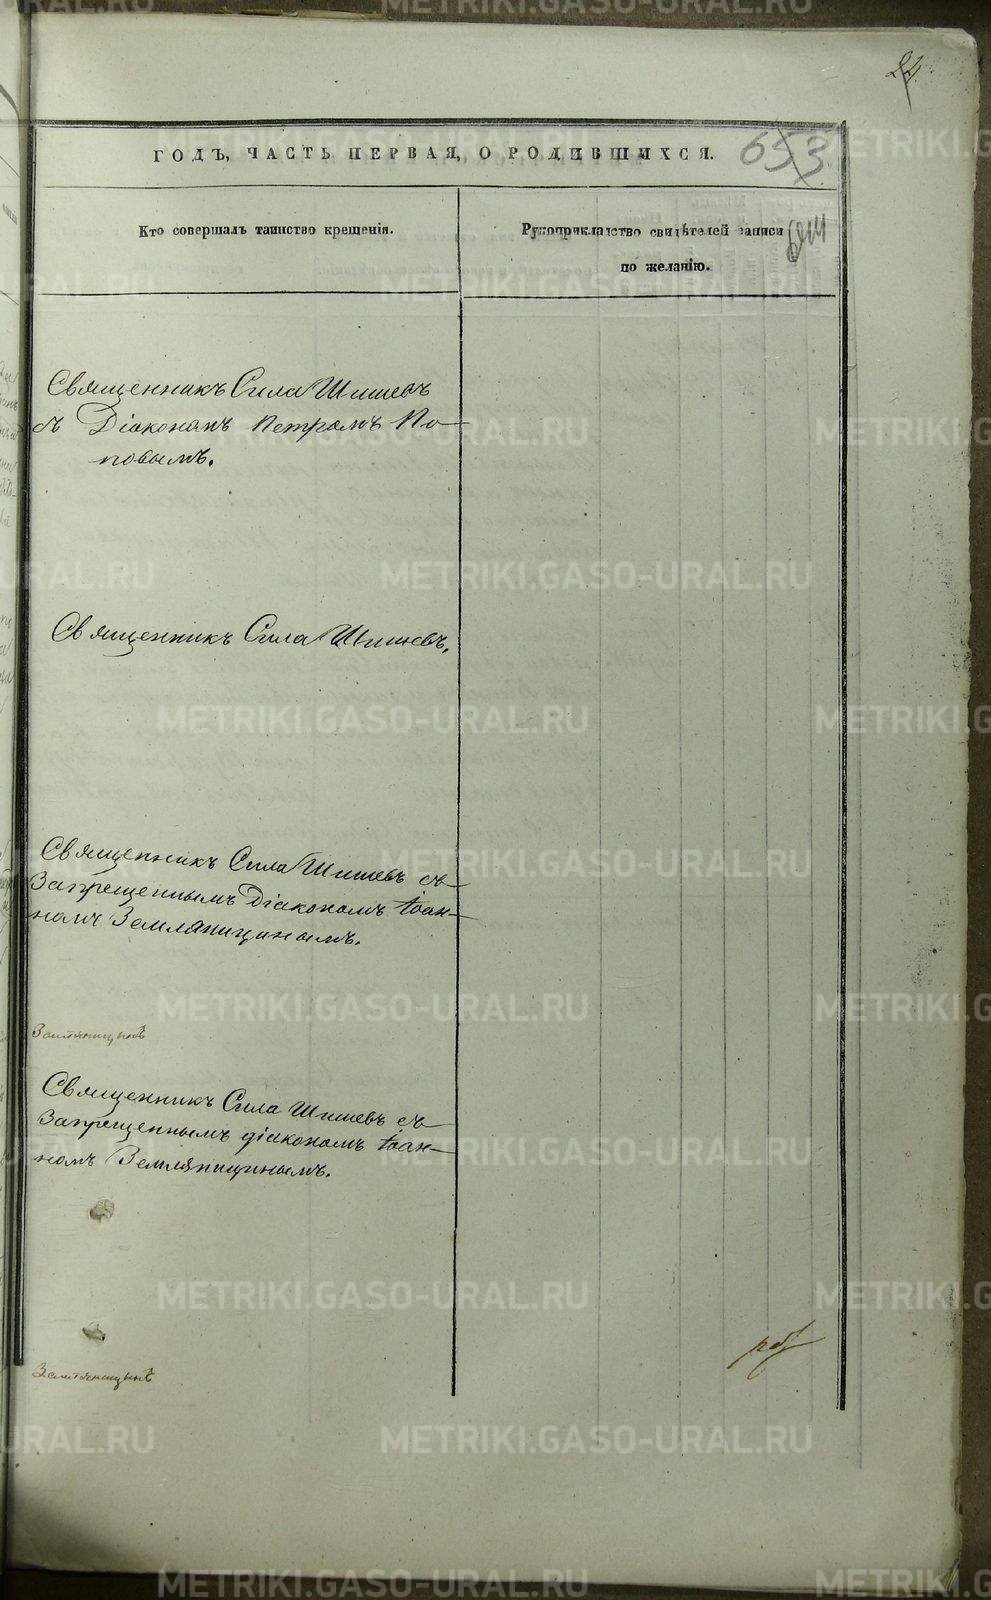 24
ГОДЪ, ЧАСТЬ ПЕРВАЯ, О РОДИВШИХСЯ.
653
Кто совершалъ таинство крещенія.
Рукоприкладство свидѣтелей записи
по желанію.
Священникъ Сила Шишевъ
съ Діакономъ Петромъ По-
повымъ.
Священникъ Сила Шишевъ.
Священникъ Сила Шишевъ съ
Запрещеннымъ Діакономъ Іоан-
номъ Земляницинымъ.
Священникъ Сила Шишевъ съ
Запрещеннымъ діакономъ Іоан-
номъ Земляницинымъ.
METRIKI.GASO-URAL.RU